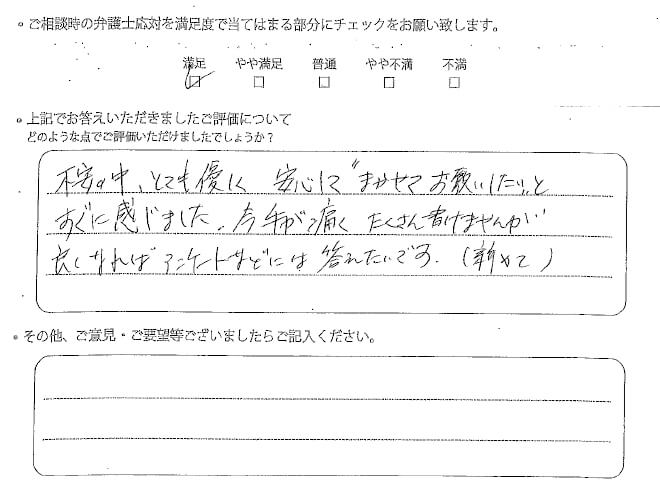 。ご相談時の弁護士応対を満足度で当てはまる部分にチェックをお願い致します。
満足 やや満足 普通 やや不満 不満
。上記でお答えいただきましたご評価について
どのような点でご評価いただけましたでしょうか?
不安の中、とても優しく 安心して"まかせてお願いしたい"と
すぐに感じました。今手が痛く たくさん書けませんが
良くなれば アンケートなどには 答えたいです。(新めて)
。その他、ご意見・ご要望等ございましたらご記入ください。